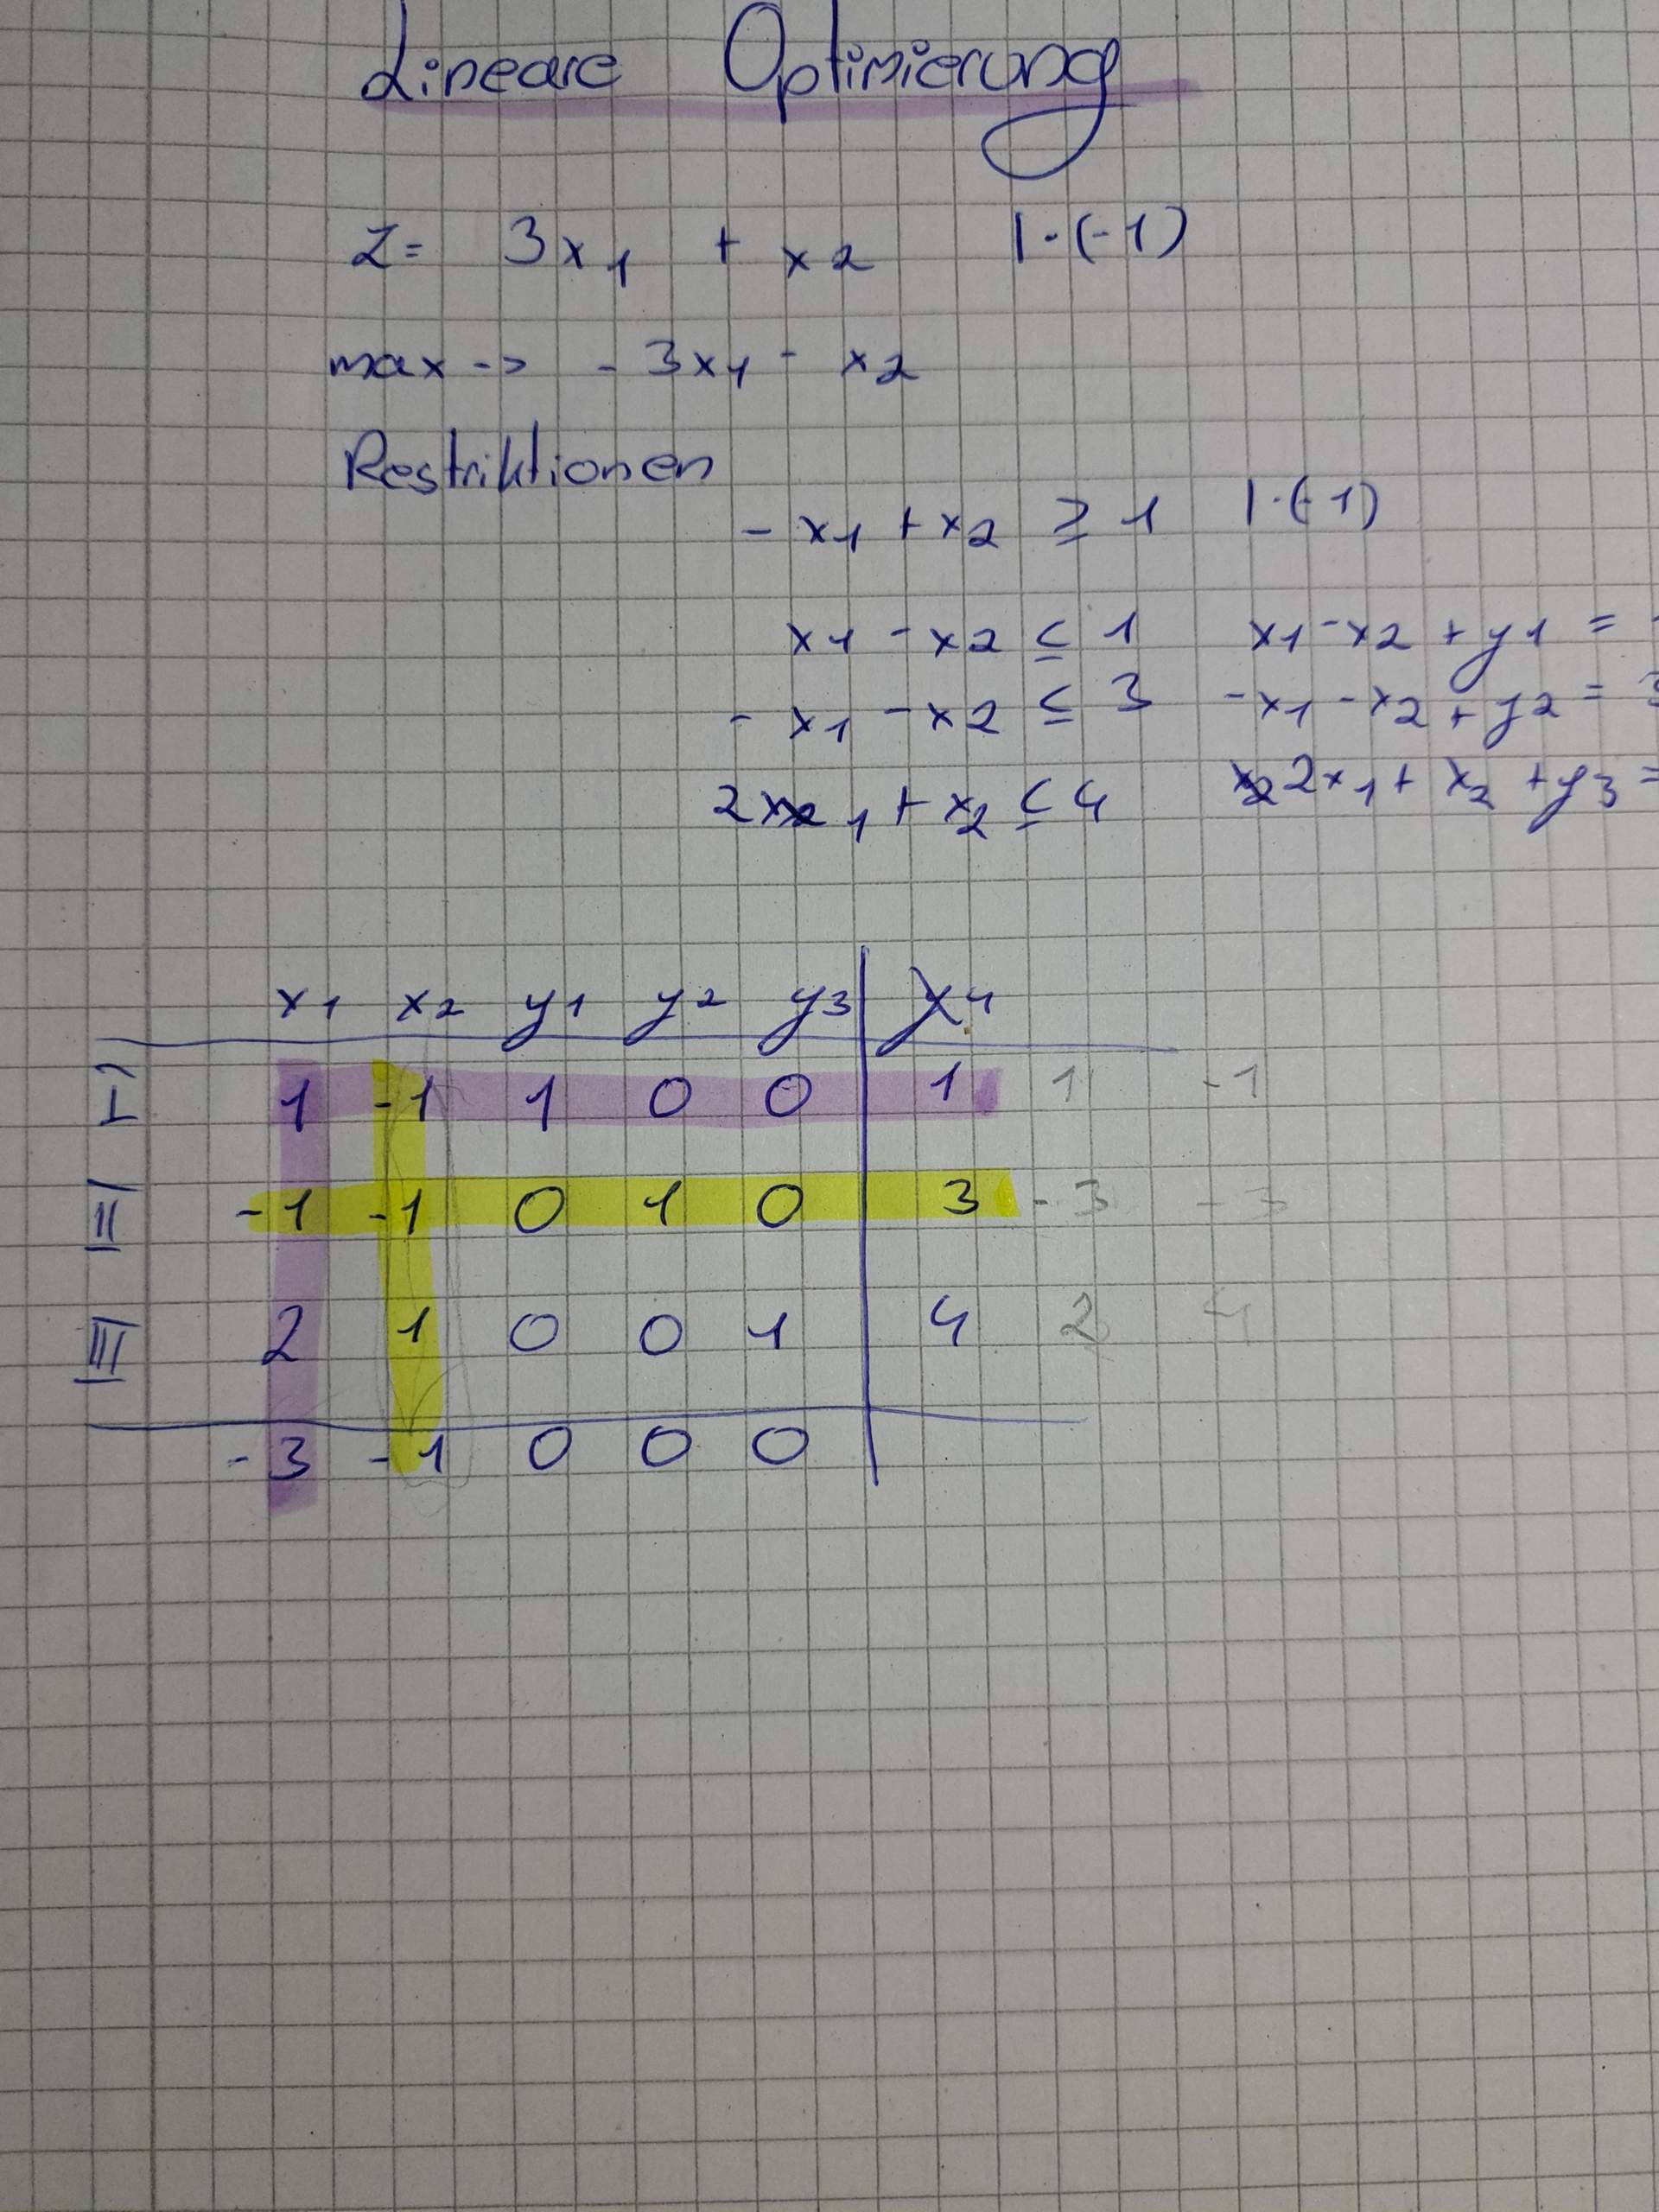 Lineare Optimierung
Z= 3x1 + x2 |·(-1)
max -> - 3x1 - x2
Restriktionen
- x1 + x2 ≥ 1 |·(-1)
x1 - x2 ≤ 1 x1 - x2 + y1 =
- x1 - x2 ≤ 3 -x1 - x2 + y2 = 3
2x1 + x2 ≤ 4 2x1 + x2 + y3 =
x1 x2 y1 y2 y3
I) 1 -1 1 0 0 1 1 -1
II) -1 -1 0 1 0 3 -3 -3
III) 2 1 0 0 1 4 2 4
-3 -1 0 0 0